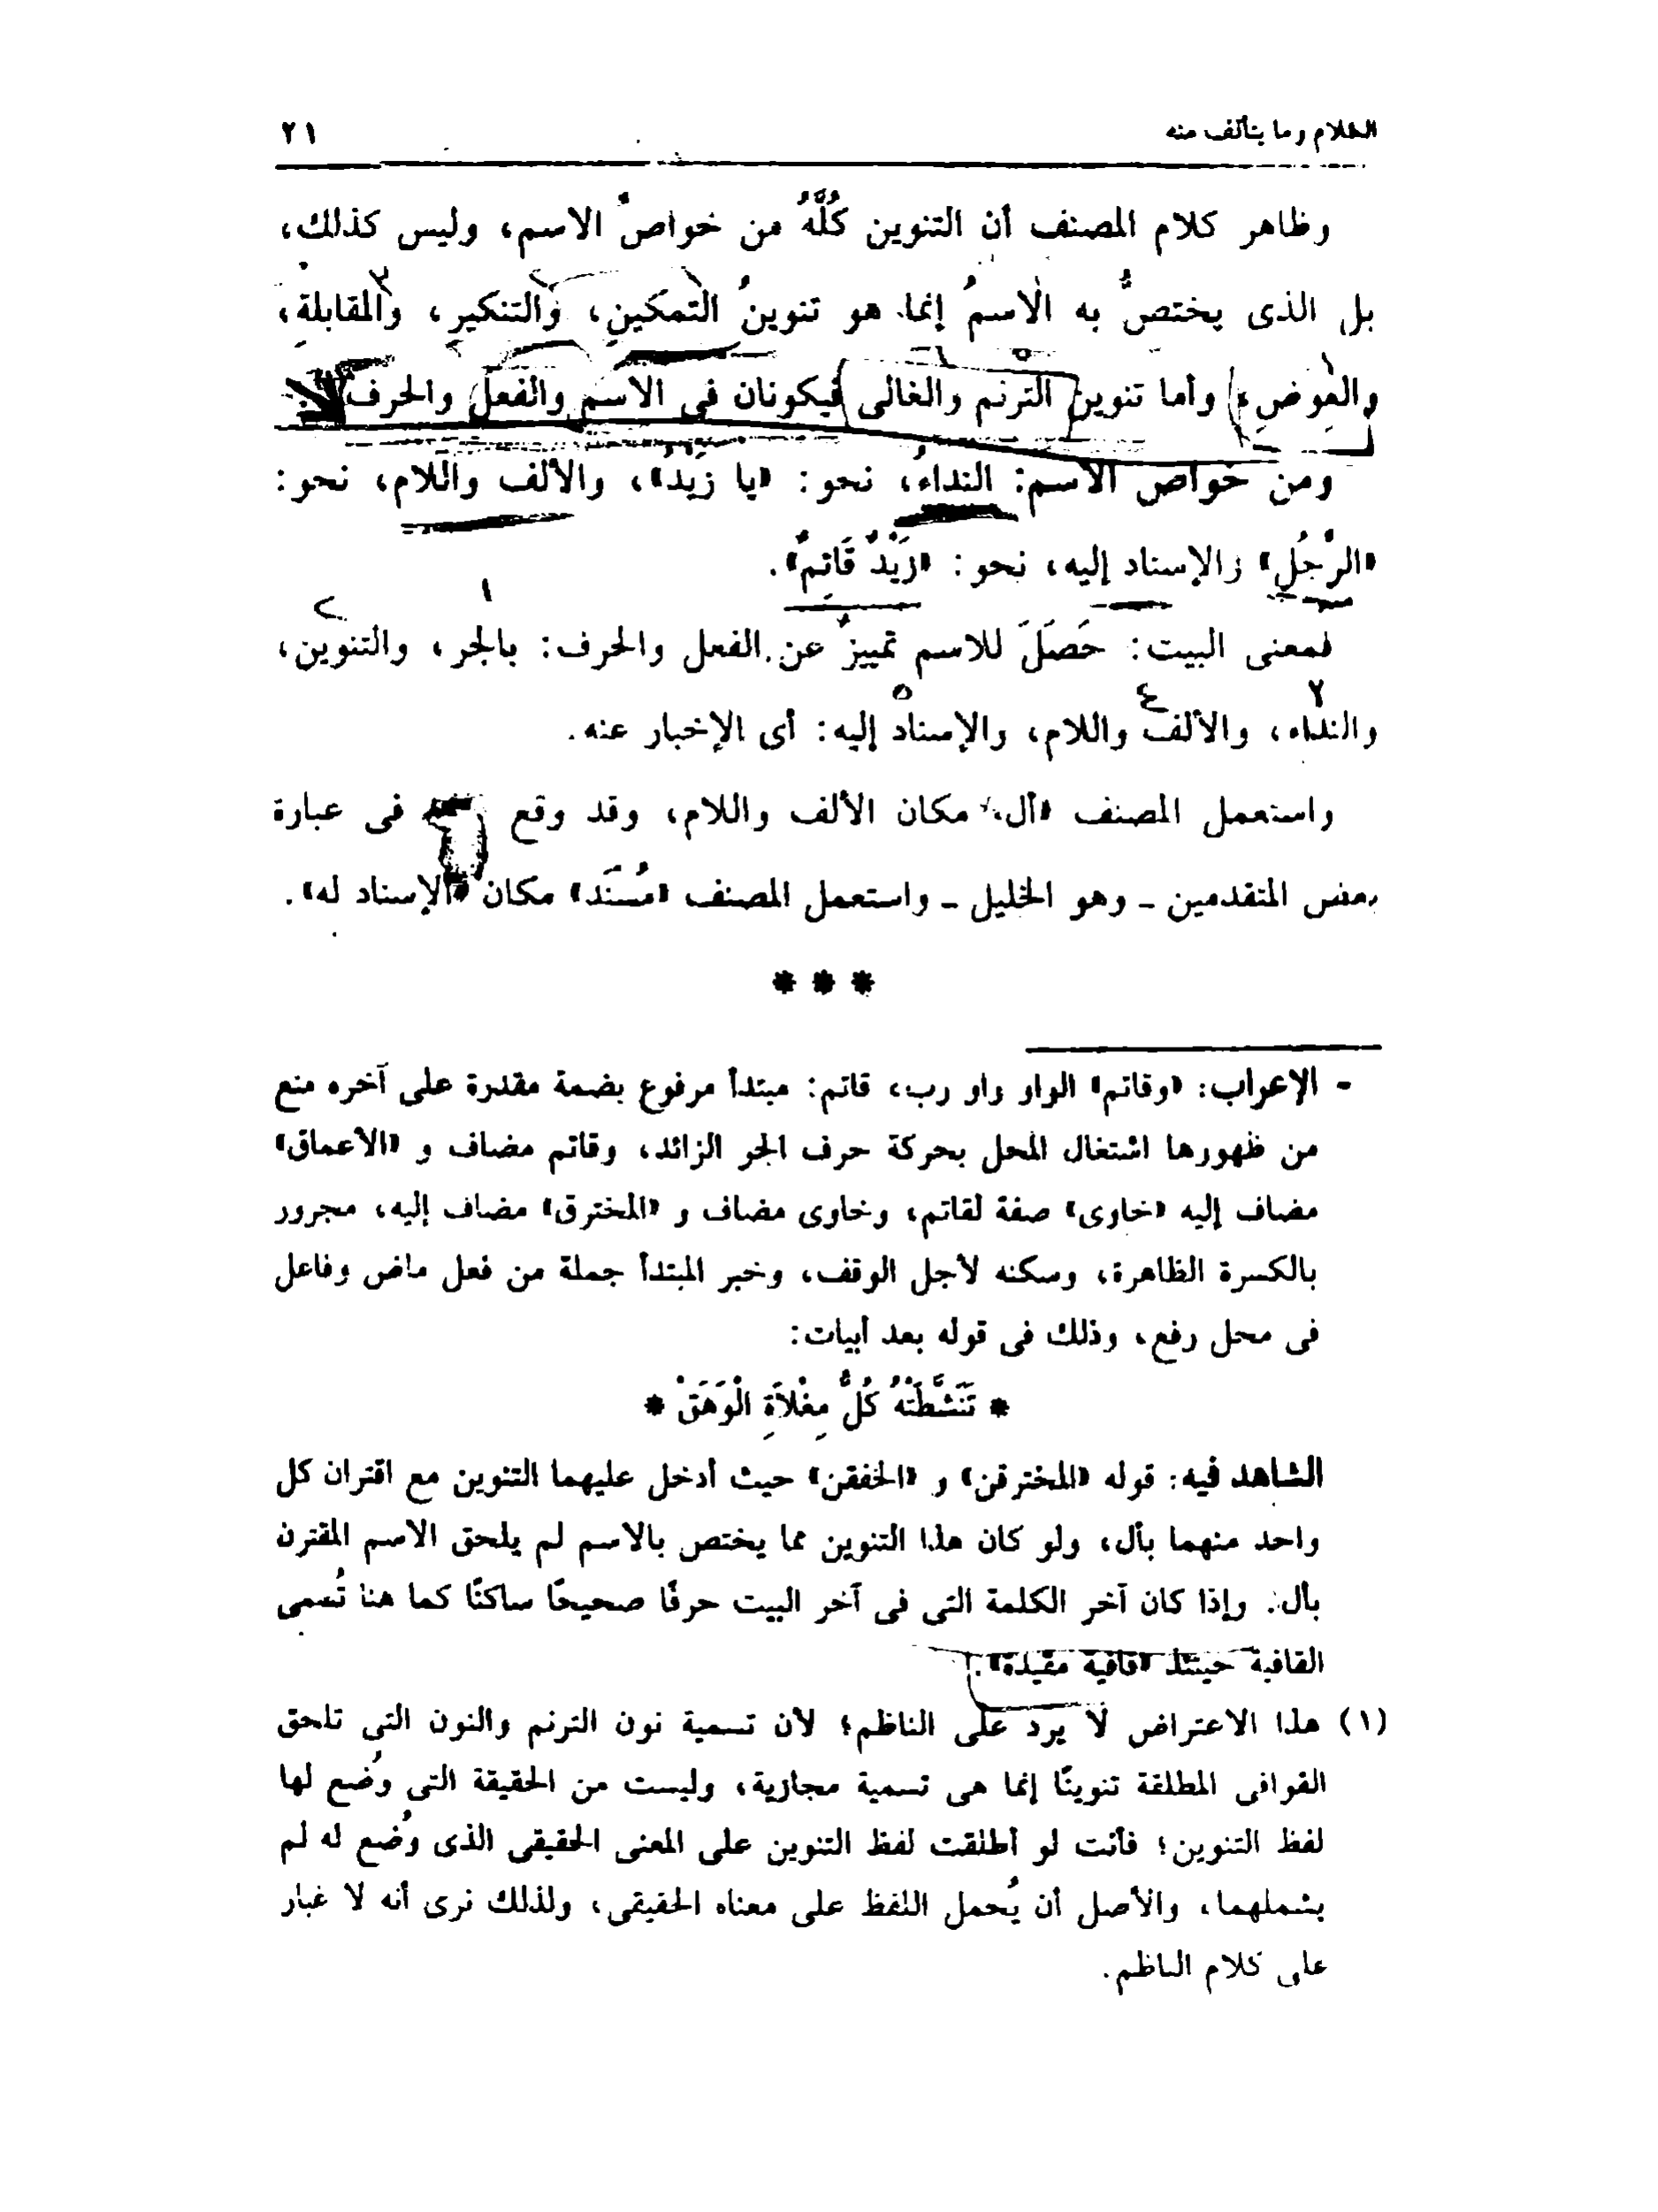 الكلام وما يتألف منه ٢١
وظاهر كلام المصنف أن التنوين كُلَّهُ من خواصِّ الاسم، وليس كذلك،
بل الذى يختصُّ به الاسمُ إنما هو تنوينُ التمكينِ، والتنكيرِ، والمقابلةِ،
والعِوضِ، وأما تنوين الترنم والغالى فيكونان فى الاسم والفعل والحرف
ومن خواص الاسم: النداءُ، نحو: «يا زَيْدُ»، والألف واللام، نحو:
«الرَّجُلِ» والإسناد إليه، نحو: «زَيْدٌ قَائِمٌ».
فمعنى البيت: حَصَلَ للاسم تمييزٌ عن الفعل والحرف: بالجر، والتنوين،
١ ٢
والنداء، والألف واللام، والإسناد إليه: أى الإخبار عنه.
٤ ٥
واستعمل المصنف «أل» مكان الألف واللام، وقد وقع فى عبارة
بعض المتقدمين ـ وهو الخليل ـ واستعمل المصنف «مُسْنَد» مكان «الإسناد له».
* * *
- الإعراب: «وقاتم» الواو واو رب، قاتم: مبتدأ مرفوع بضمة مقدرة على آخره منع
من ظهورها اشتغال المحل بحركة حرف الجر الزائد، وقاتم مضاف و «الأعماق»
مضاف إليه «خاوى» صفة لقاتم، وخاوى مضاف و «المخترق» مضاف إليه، مجرور
بالكسرة الظاهرة، وسكنه لأجل الوقف، وخبر المبتدأ جملة من فعل ماض وفاعل
فى محل رفع، وذلك فى قوله بعد أبيات:
* تَنَشَّطَتْهُ كُلُّ مِغْلاَةِ الْوَهَقْ *
الشاهد فيه: قوله «المخترقن» و «الخفقن» حيث أدخل عليهما التنوين مع اقتران كل
واحد منهما بأل، ولو كان هذا التنوين مما يختص بالاسم لم يلحق الاسم المقترن
بأل. وإذا كان آخر الكلمة التى فى آخر البيت حرفًا صحيحًا ساكنًا كما هنا تُسمى
القافية حينئذ «قافية مقيدة».
(١) هذا الاعتراض لا يرد على الناظم؛ لأن تسمية نون الترنم والنون التى تلحق
القوافى المطلقة تنوينًا إنما هى تسمية مجازية، وليست من الحقيقة التى وُضع لها
لفظ التنوين؛ فأنت لو أطلقت لفظ التنوين على المعنى الحقيقى الذى وُضع له لم
يشملهما، والأصل أن يُحمل اللفظ على معناه الحقيقى، ولذلك نرى أنه لا غبار
على كلام الناظم.